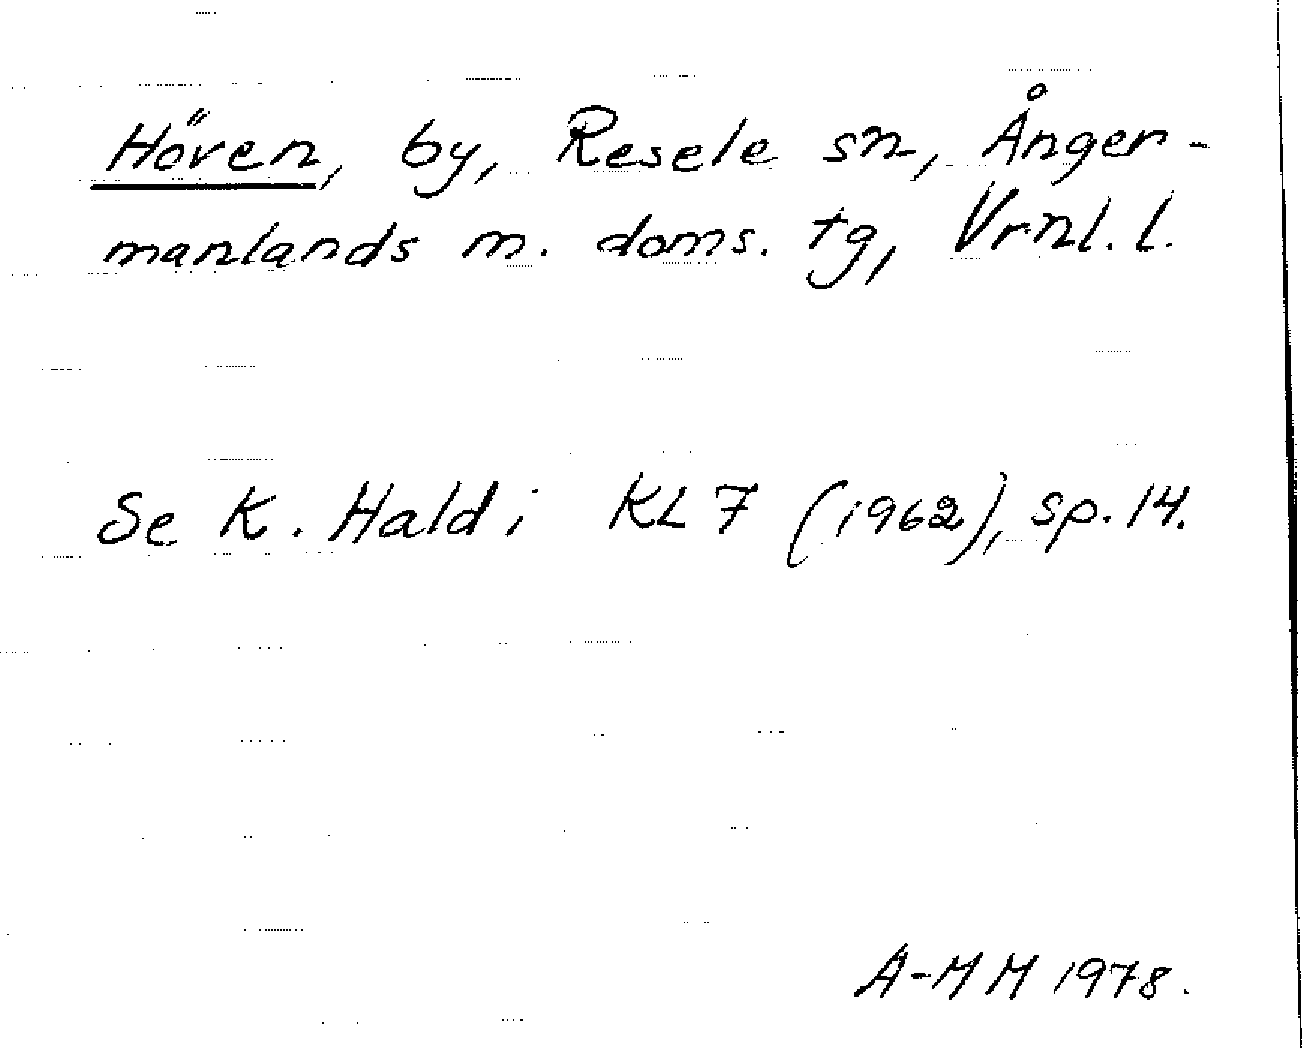 Höven, by, Resele sn, Ånger-
manlands m. doms. tg, Vrnl. l.
Se K. Hald i KL 7 (1962), sp. 14.
A-MM 1978.